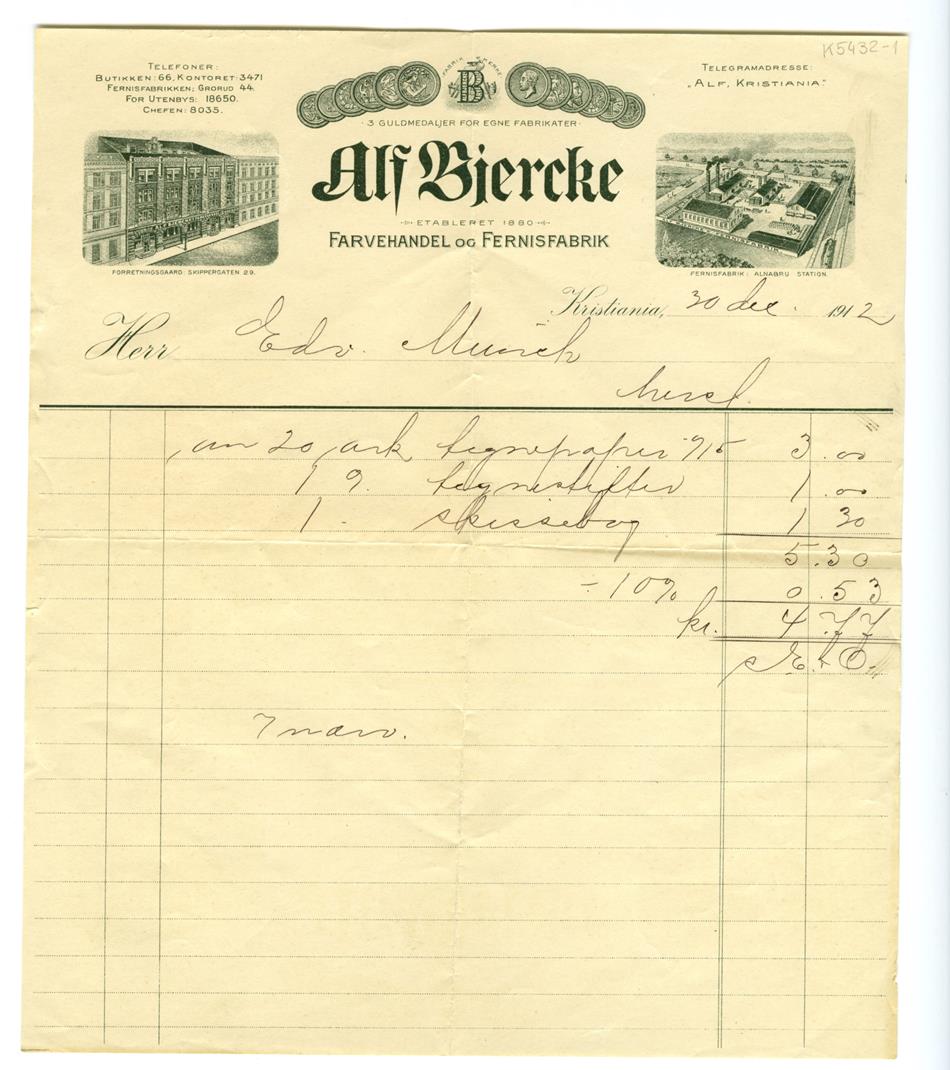 K5432-1
TELEFONER:
BUTIKKEN: 66, KONTORET: 3471
FERNISFABRIKKEN; GRORUD 44.
FOR UTENBYS: 18650.
CHEFEN: 8035.
FABRIK MERKE
B
TELEGRAMADRESSE:
„ALF, KRISTIANIA."
· 3 GULDMEDALJER FOR EGNE FABRIKATER ·
Alf Bjercke
ETABLERET 1880
FARVEHANDEL OG FERNISFABRIK
FORRETNINGSGAARD: SKIPPERGATEN 29.
FERNISFABRIK: ALNABRU STATION.
Kristiania, 30 dec. 1912
Herr Edv. Munch
20 ark tegnepapir 3.00
1 tegnestifter 1.00
1 skissebog 1 30
5.30
- 10% 0.53
kr. 4.77
E. & O.